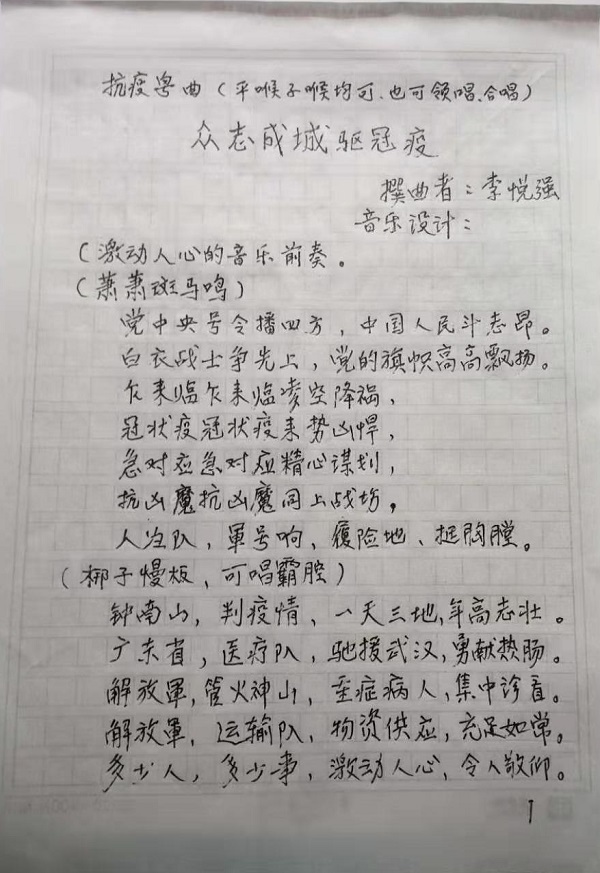 抗疫粤曲（平喉子喉均可、也可领唱、合唱）
众志成城驱冠疫
撰曲者：李悦强
音乐设计：
（激动人心的音乐前奏。
（萧萧斑马鸣）
党中央号令播四方，中国人民斗志昂。
白衣战士争先上，党的旗帜高高飘扬。
乍来临乍来临凌空降祸，
冠状疫冠状疫来势凶悍，
急对应急对应精心谋划，
抗凶魔抗凶魔同上战场，
人当队，軍号响，履险地、挺胸膛。
（梆子慢板，可唱霸腔）
钟南山，判疫情，一天三地，年高志壮。
广东省，医疗队，驰援武汉，勇献热肠。
解放軍，管火神山，重症病人，集中诊看。
解放軍，运输队，物资供应，充足如常。
多少人，多少事，激动人心，令人敬仰。
1